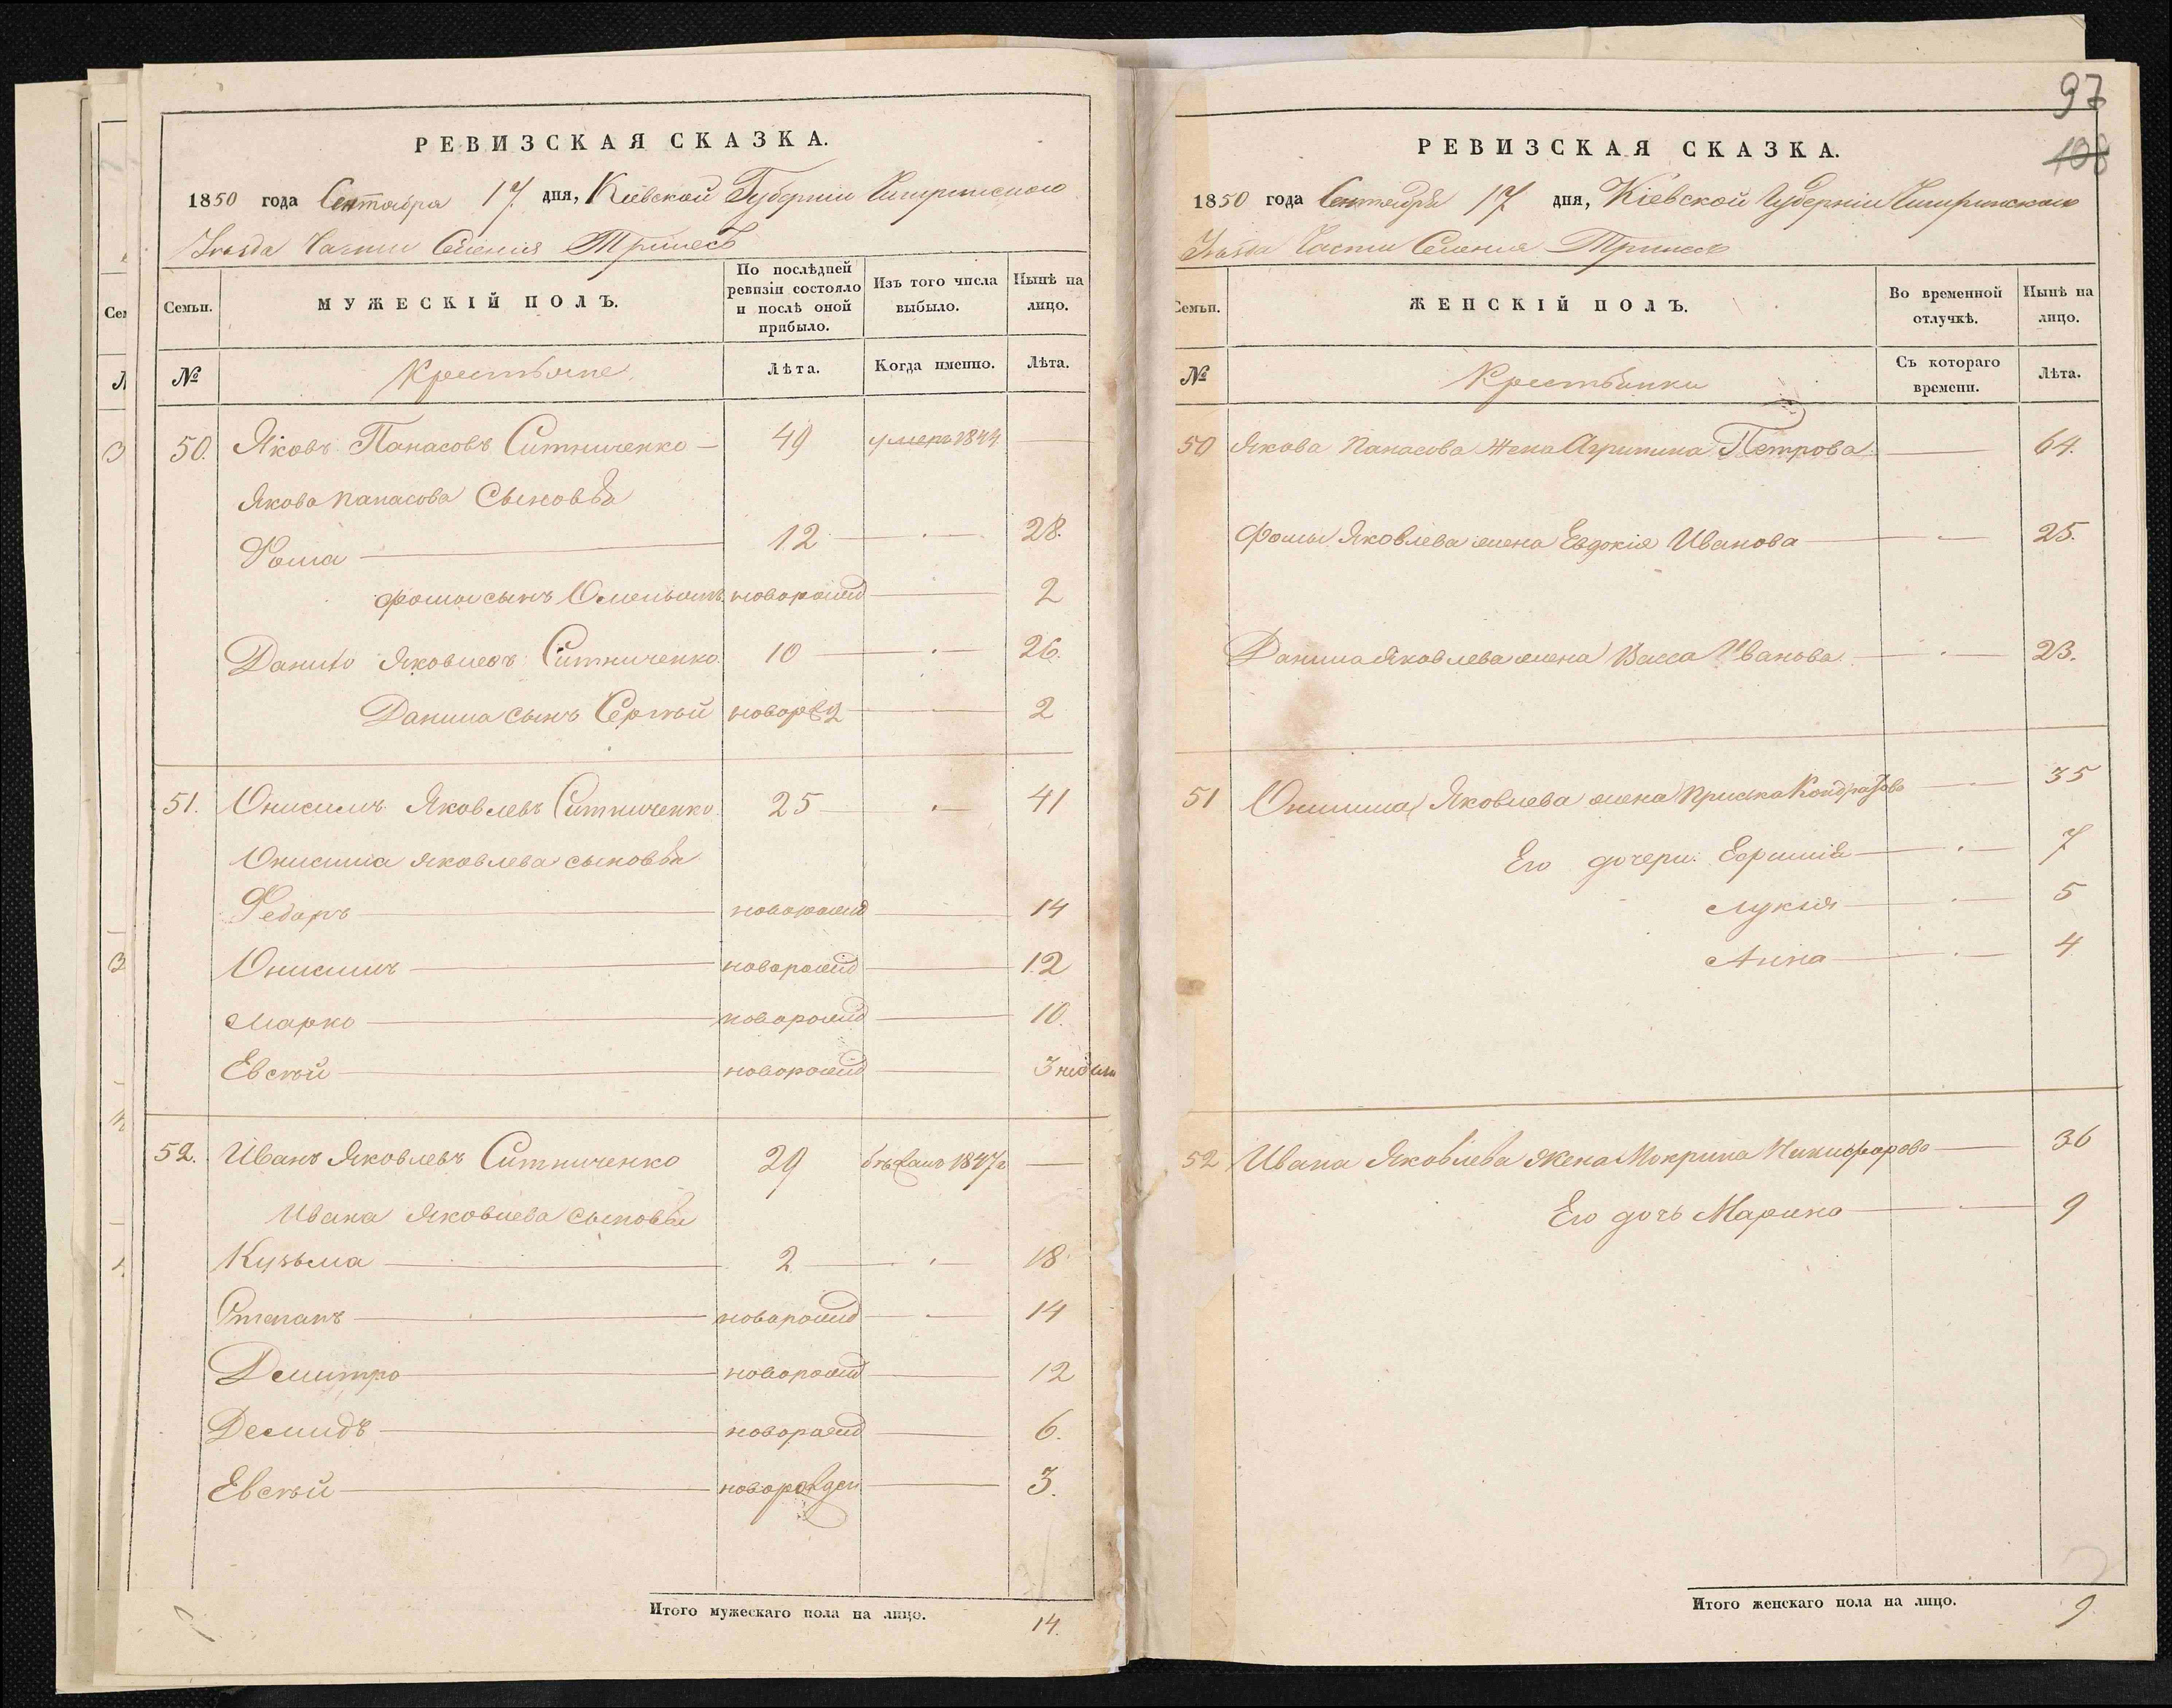 РЕВИЗСКАЯ СКАЗКА.
1850 года Сентября 17 дня, Кіевской Губерніи Чигиринскаго
Уѣзда Части Селенія Трилесъ
Семьи. МУЖЕСКІЙ ПОЛЪ. По послѣдней ревизіи состояло и послѣ оной прибыло. Изъ того числа выбыло. Нынѣ на лицо.
№ Крестьяне Лѣта. Когда именно. Лѣта.
50. Яковъ Панасовъ Ситниченко 49 умеръ 1844
Якова Панасова Сыновья
Фома 12 28.
Фомы сынъ новорожд 2
Данило Яковлевъ Ситниченко 10 26.
Данила сынъ Сергѣй новорожд 2
51. Онисимъ Яковлевъ Ситниченко 25 41
Онисима Яковлева сыновья
Федоръ новорожд 14
Онисимъ новорожд 12
Марко новорожд 10.
Евсѣй новорожд 3 недѣли
52. Иванъ Яковлевъ Ситниченко 29 бѣжалъ 1847г
Ивана Яковлева сыновья
Кузьма 2 18
Степанъ новорожд 14
Демитро новорожд 12
Демидъ новорожд 6.
Евсѣй новорожден 3.
Итого мужескаго пола на лицо. 14.
97
108
РЕВИЗСКАЯ СКАЗКА.
1850 года Сентября 17 дня, Кіевской Губерніи Чигиринскаго
Уѣзда Части Селенія Трилесъ
Семьи. ЖЕНСКІЙ ПОЛЪ. Во временной отлучкѣ. Нынѣ на лицо.
№ Крестьянки Съ котораго времени. Лѣта.
50 Якова Панасова жена Агрипина Петрова 64.
Фомы Яковлева жена Евдокія Иванова 25.
Данила Яковлева жена Васса Иванова 23.
51 Онисима Яковлева жена Приська Кондратова 35
Его дочери: Ефимія 7
Лукія 5
Анна 4
52 Ивана Яковлева жена Мокрина Никифорова 36
Его дочь Марина 9
Итого женскаго пола на лицо. 9